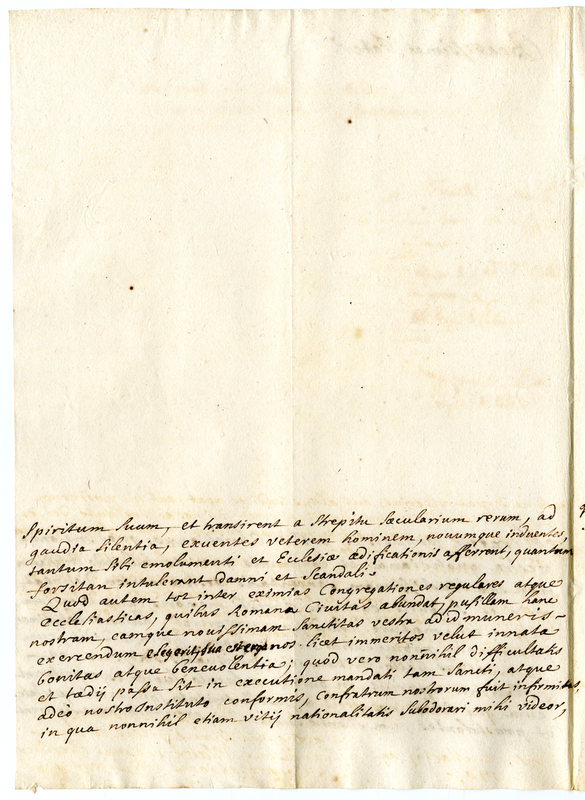 Spiritum suum, et transirent a strepitu sæcularium rerum, ad
gaudia silentia, exuentes veterem hominem, novumque induentes,
tantum sibi emolumenti et Ecclesiæ ædificationis afferrent, quantum
forsitan intulerant damni et scandali.
Quod autem tot inter eximias Congregationes regulares atque
Ecclesiasticas, quibus Romana Civitas abundat, pusillam hanc
nostram, eamque novissimam Sanctitas vestra ad id muneris -
exercendum elegerit, sua est erga nos licet immeritos velut innata
bonitas atque benevolentia; quod vero nonnihil difficultatis
et tædij passa sit in executione mandati tam Sancti, atque
adeò nostro Instituto conformis, Confratrum nostrorum fuit infirmitas,
in qua nonnihil etiam vitij nationalitatis subodorari mihi videor,